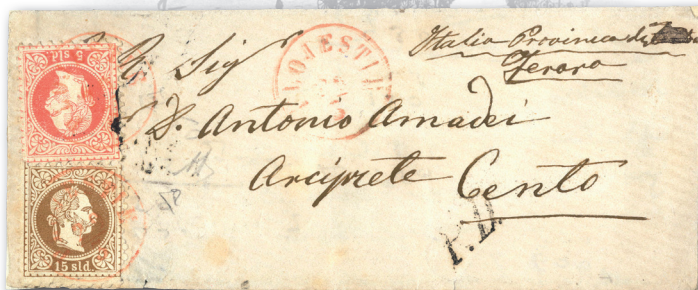 Italia Provincia di
Ferara
Sig
D. Antonio Amadei
Arciprete Cento
P.D.
5 sld.
15 sld.